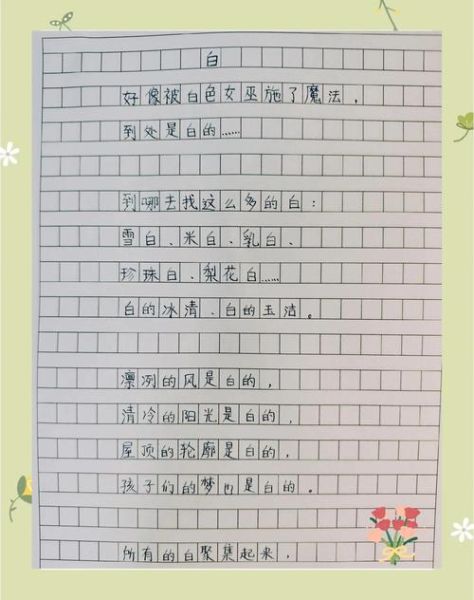 白
好像被白色女巫施了魔法，
到处是白的……
到哪去找这么多的白：
雪白、米白、乳白、
珍珠白、梨花白……
白的冰清、白的玉洁。
凛冽的风是白的，
清冷的阳光是白的，
屋顶的轮廓是白的，
孩子们的梦也是白的。
所有的白聚集起来，